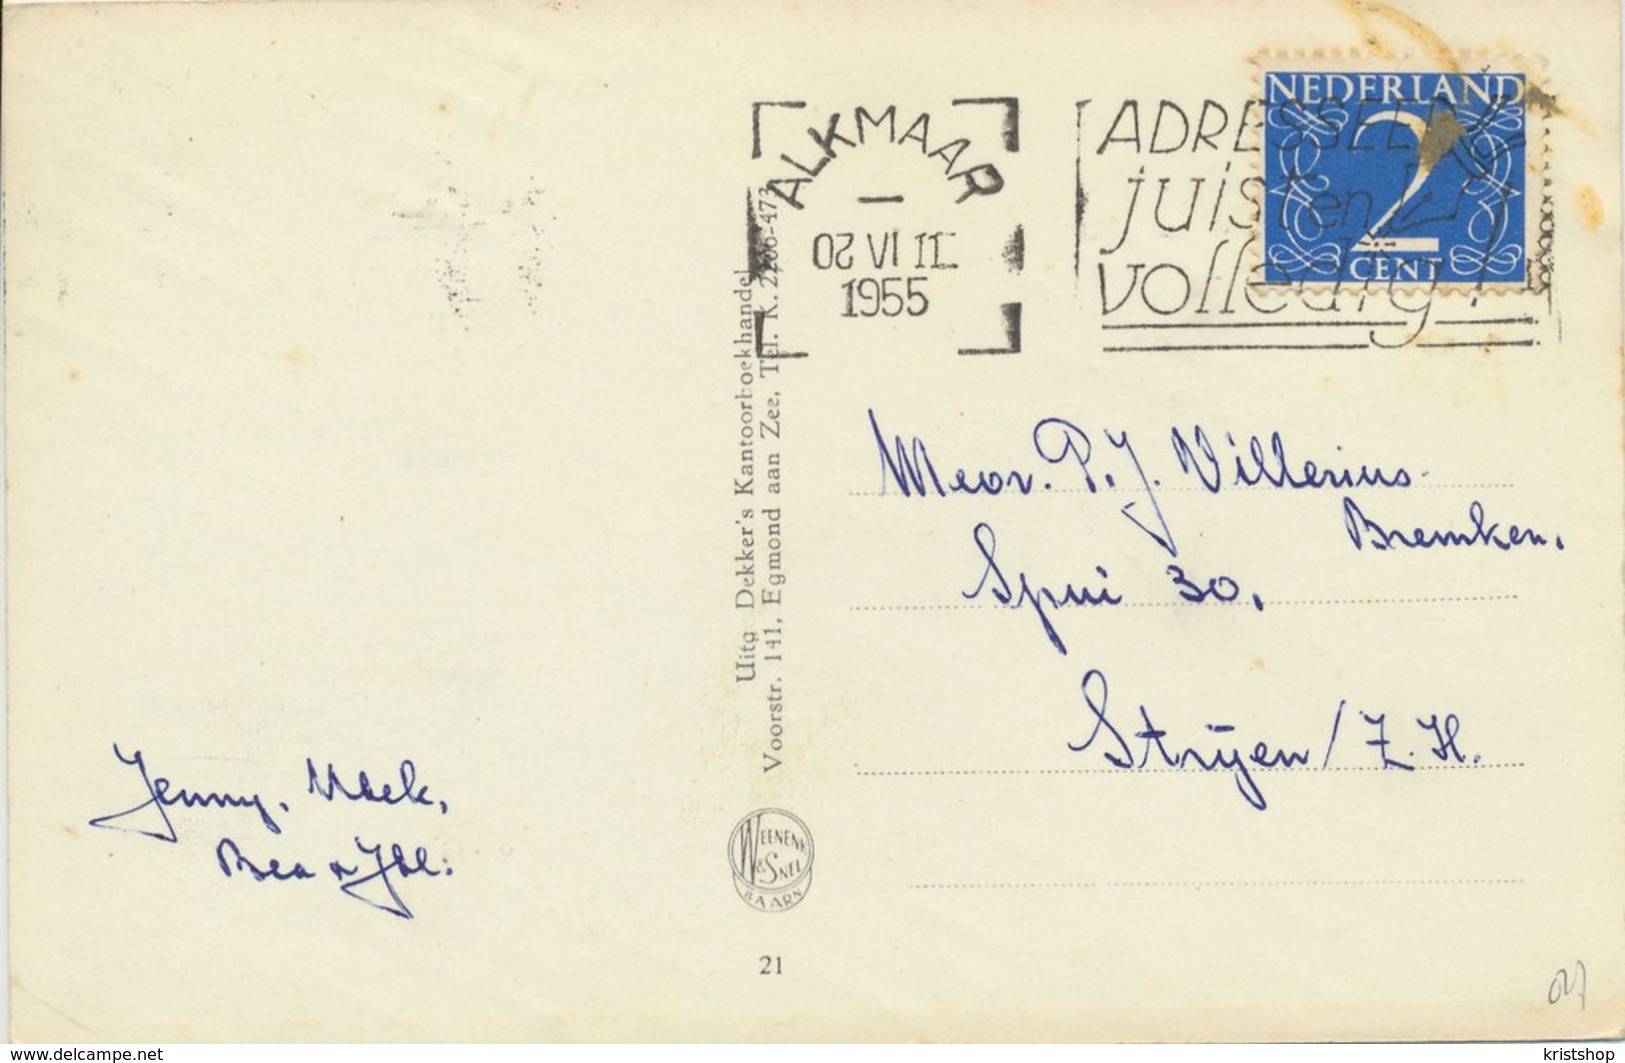 NEDERLAND
2
CENT
ALKMAAR
1955
ADRESSEER
juist en
volledig!
Uitg Dekker's Kantoorboekhandel
Voorstr. 141, Egmond aan Zee, Tel. K. 2206-473
Mevr. P. J. Villerius
Bremken.
Spui 30.
Stryen / Z. H.
Jenny,
Bea
WEENENK
& SNEL
BAARN
21
www.delcampe.net
kristshop